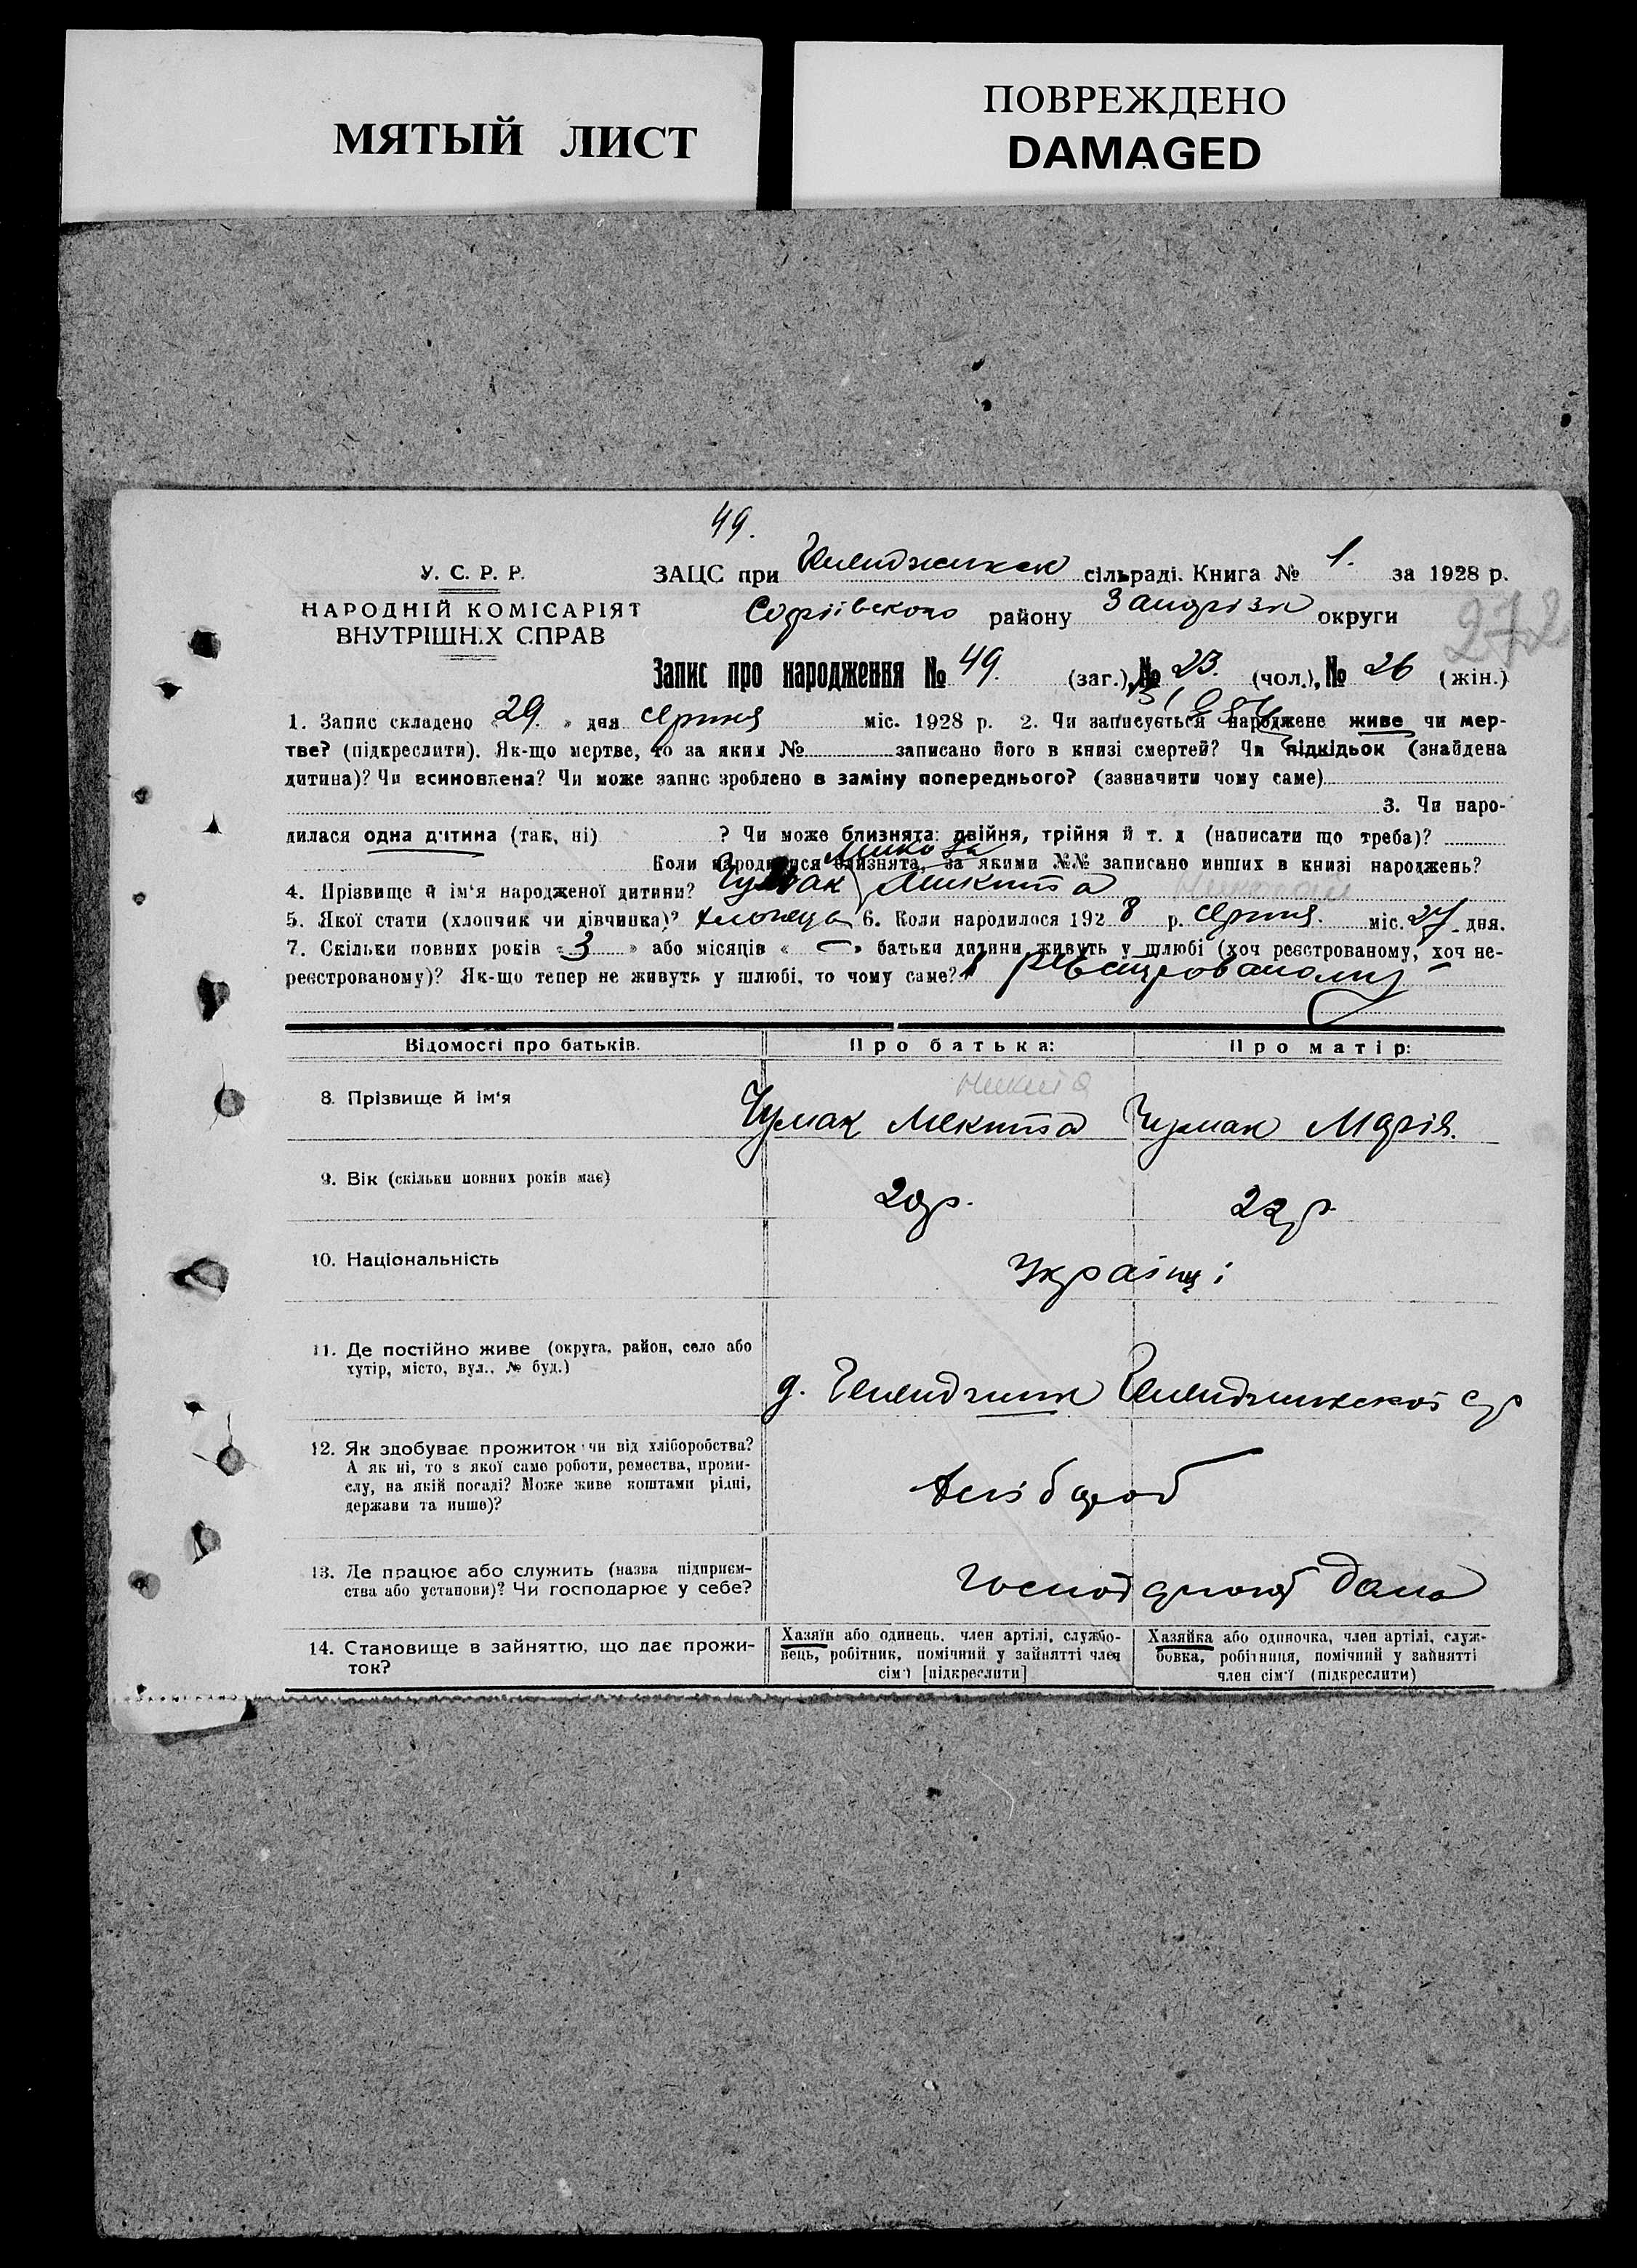 МЯТЫЙ ЛИСТ
ПОВРЕЖДЕНО
DAMAGED
49.
У. С. Р. Р.
НАРОДНІЙ КОМІСАРІЯТ
ВНУТРІШНІХ СПРАВ
ЗАЦС при сільраді. Книга № 1. за 1928 р.
Софіівского району округи
272
Запис про народження № 49. (заг.), № 23. (чол.), № 26 (жін.)
1. Запис складено «29.» дня серпня міс. 1928 р. 2. Чи записується народжене живе чи мер-
тве? (підкреслити). Як-що мертве, то за яким № записано його в книзі смертей? Чи підкідьок (знайдена
дитина)? Чи всиновлена? Чи може запис зроблено в заміну попереднього? (зазначити чому саме)
3. Чи наро-
дилася одна дитина (так, ні) ? Чи може близнята: двійня, трійня й т. д (написати що треба)?
Коли народилися близнята, за якими №№ записано инших в книзі народжень?
Микола
4. Прізвище й ім'я народженої дитини? Чумак Микита Николай
5. Якої стати (хлопчик чи дівчинка)? хлопець 6. Коли народилося 1928 р. серпня. міс. 27 дня.
7. Скільки повних років «3» або місяців « — » батьки дитини живуть у шлюбі (хоч реєстрованому, хоч не-
реєстрованому)? Як-що тепер не живуть у шлюбі, то чому саме?
Відомості про батьків. Про батька: Про матір:
Никита
8. Прізвище й ім'я Чумак Микита Чумак Марія.
9. Вік (скільки повних років має) 20 р. 22 р.
10. Національність Українці
11. Де постійно живе (округа, район, село або
хутір, місто, вул., № буд.)
12. Як здобуває прожиток чи від хліборобства?
А як ні, то з якої саме роботи, ремества, проми-
слу, на якій посаді? Може живе коштами рідні,
держави та инше)?
Хлібороб
13. Де працює або служить (назва підприєм-
ства або установи)? Чи господарює у себе?
14. Становище в зайняттю, що дає прожи-
ток?
Хазяїн або одинець, член артілі, службо-
вець, робітник, помічний у зайнятті член
сім'ї [підкреслити]
Хазяйка або одиночка, член артілі, служ-
бовка, робітниця, помічний у зайнятті
член сім'ї (підкреслити)